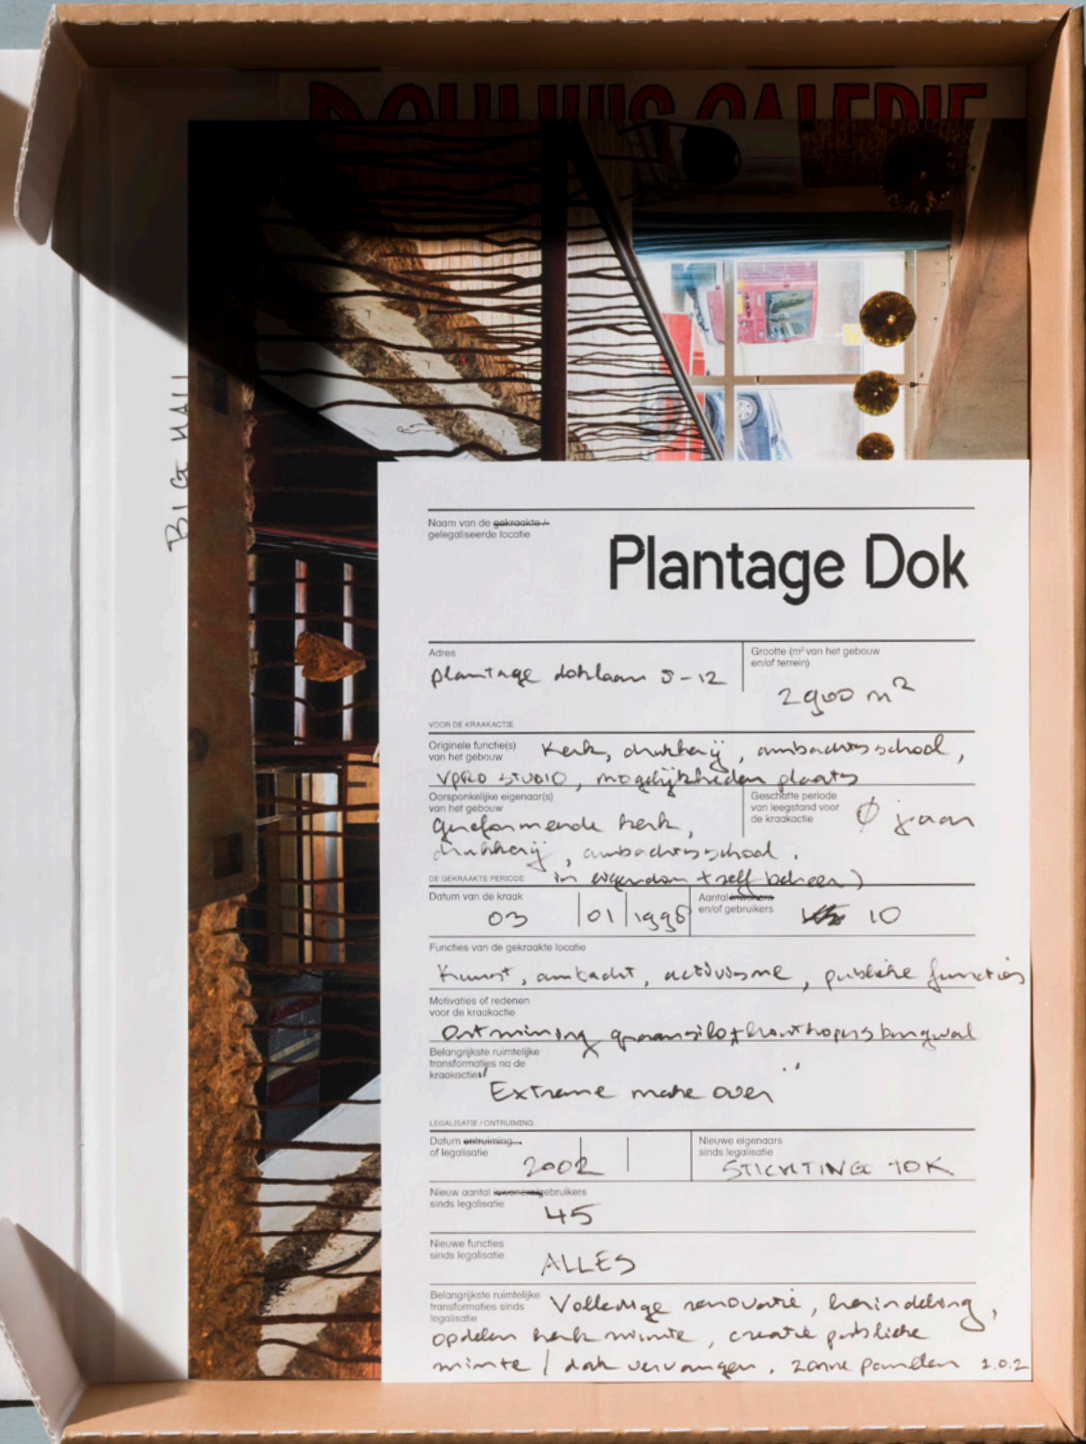 BIG HALL
Naam van de gekraakte /
gelegaliseerde locatie
Plantage Dok
Adres
plantage doklaan 8-12
Grootte (m² van het gebouw
en/of terrein)
2900 m²
VOOR DE KRAAKACTIE
Originele functie(s)
van het gebouw
Kerk, drukkerij, ambachtsschool,
VPRO STUDIO, mogelijkheden plaats
Oorsponkelijke eigenaar(s)
van het gebouw
gereformeerde kerk,
drukkerij, ambachtsschool.
Geschatte periode
van leegstand voor
de kraakactie
Ø jaar
in eigendom + zelf beheer)
DE GEKRAAKTE PERIODE
Datum van de kraak
03 | 01 | 1998
Aantal inwoners
en/of gebruikers
10
Functies van de gekraakte locatie
Kunst, ambacht, activisme, publieke functies
Motivaties of redenen
voor de kraakactie
Ontruiming graansilo +
Belangrijkste ruimtelijke
transformaties na de
kraakactie
"Extreme make over"
LEGALISATIE / ONTRUIMING
Datum ontruiming
of legalisatie
2002
Nieuwe eigenaars
sinds legalisatie
STICHTING 10K
Nieuw aantal inwoners/gebruikers
sinds legalisatie
45
Nieuwe functies
sinds legalisatie
ALLES
Belangrijkste ruimtelijke
transformaties sinds
legalisatie
Volledige renovatie, herindeling,
opdelen kerk ruimte, creatie publieke
ruimte / dak vervangen, zonne panelen